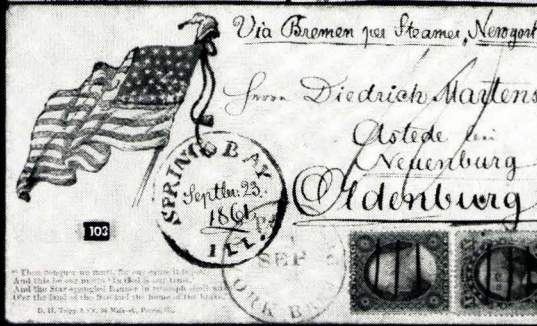 Via Bremen per Steamer, Newyork
Herrn Diedrich Martens
Astede bei
Neuenburg
Oldenburg
SPRING BAY
Septbr. 23.
1861
ILL.
SEP
YORK B
103
"Then conquer we must, for our cause it is just,
And this be our motto "In God is our trust,"
And the Star-spangled Banner in triumph shall wave
O'er the land of the free and the home of the brave.
D. H. Tripp & Co. Main-st., Peoria, Ill.